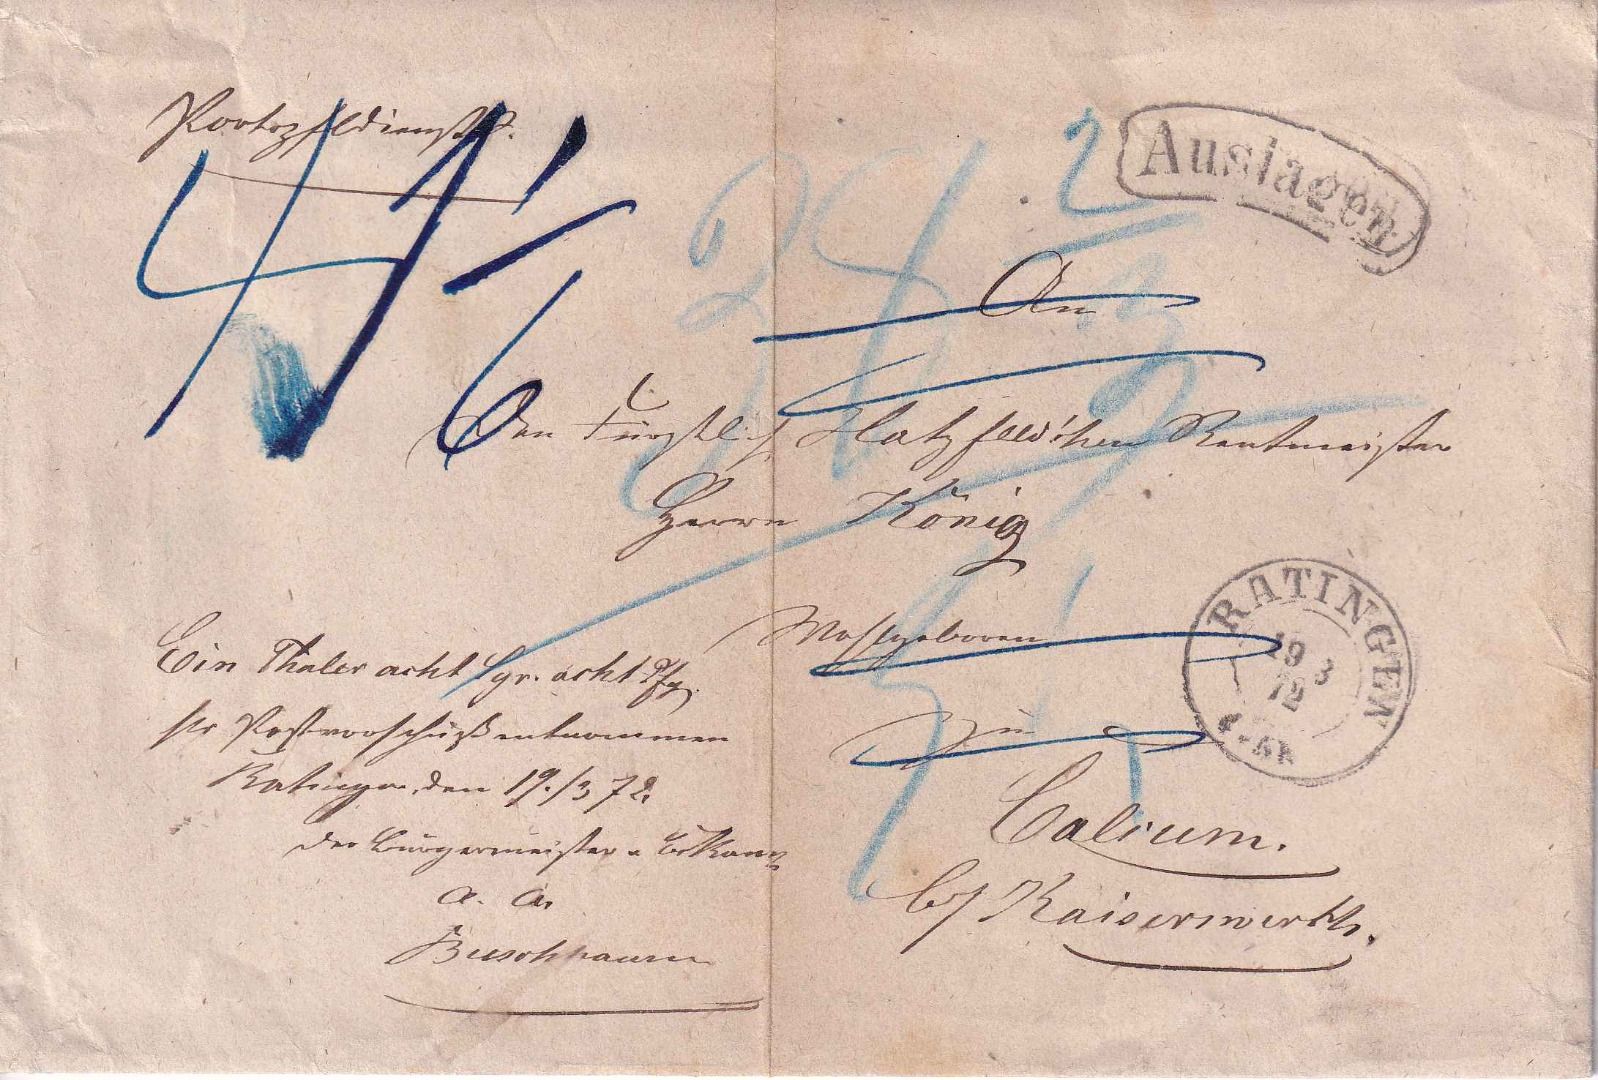 Portopfl. Diensts.
Auslagen
An
Den Fürstlich Hatzfeld'schen Rentmeister
Herrn König
Wohlgeboren
zu
Calcum.
b/ Kaiserwerth.
RATINGEN
19 3
72
Ein Thaler acht Sgr. acht Pfg.
als Postvorschuß entnommen
Ratingen, den 19./3 72.
Der Bürgermeister
a. A.
Buschhausen